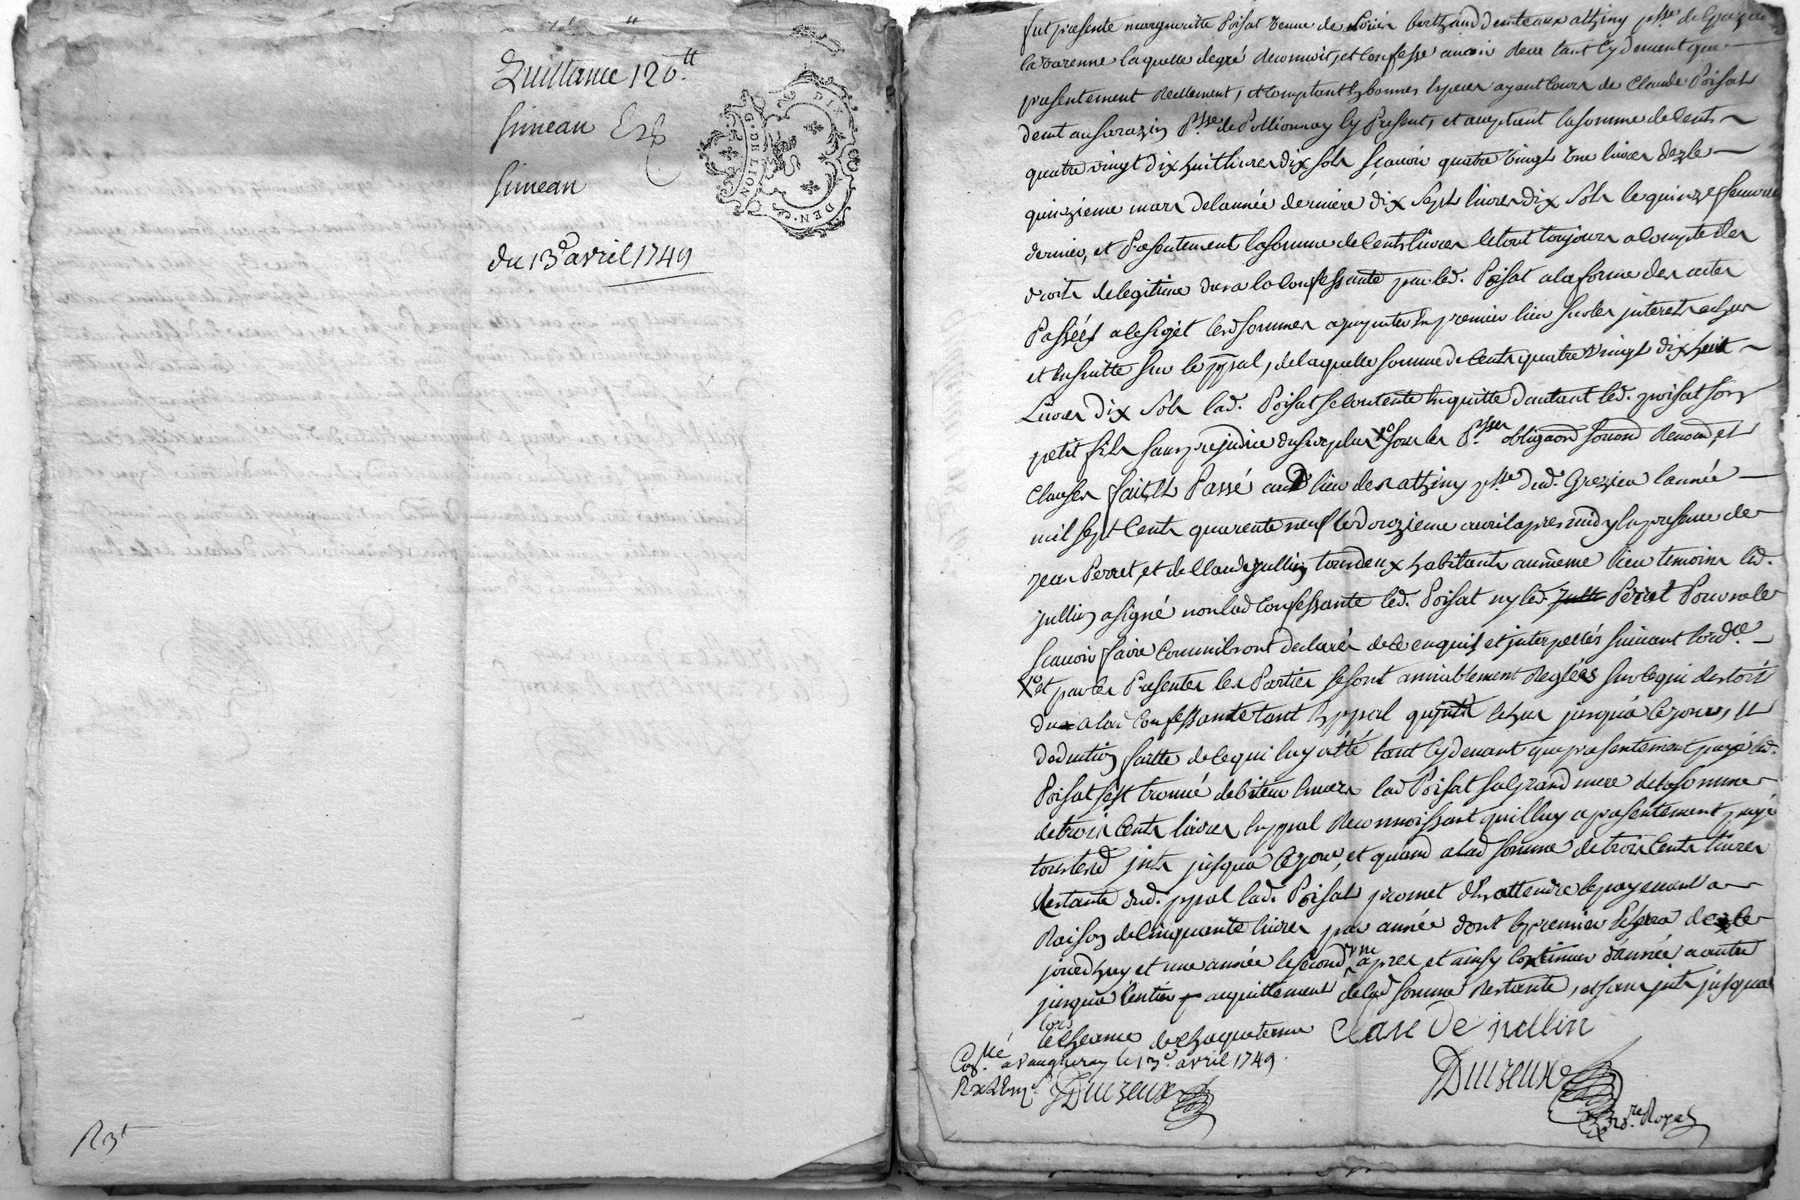 Quittance 120.tt
simean Exp
simean
du 13e avril 1749
G. DE LION
DIX DEN.
R 3t
fut presente margueritte Poisat veufve de berthaud demteaux athiny psse de Grezieu
la varenne laquelle de gré reconnoit, et confesse avoir receu tant cydevant que
presentement reellement, et comptant en bonnes especes ayant cours de Claude Poisat
demt au sarazin Psse de Pollionnay icy Present, et aceptant la somme de Cents
quatre vingt dix huit livres dix sols scavoir quatre vingt une livres dez le
quinzieme mars de l'année derniere dix sept livres dix sols le quinze fevrier
dernier, et Presentement la somme de Cents livres le tout toujours a compte des
droits de legitime deus a la Confessante par led. Poisat a la forme des actes
Passées a ce sujet lesd sommes imputées en premier lieu sur les interets echus
et ensuitte sur le ppal, de laquelle somme de Cents quatre vingt dix huit
Livres dix sols lad. Poisat se contente en quitte d'autant led. poisat son
petit fils sans prejudice du surplus Xo sous les P.sses obligaons soumons renons, et
Clauses fait et Passé aud lieu de athiny psse dud. Grezieu l'année
mil sept Cents quarente neuf le douzieme avril apres midy en presence de
jean Perret, et de Claude jullin tous deux habitants au meme lieu temoins led.
jullin a signé non lad Confessante led. Poisat ny led. Perret Pour ne le
scavoir faire comme ils ont declarés de ce enquis et interpellés suivant l'ordce
Xo et par ces Presentes les Parties se sont amiablement reglées sur ce qui restoit
du a lad Confessante tant en ppal qu'jnts echus jusqu'a ce jour, et
deduction faitte de ce qui luy a été tant cydevant que presentement payé led.
Poisat s'est trouvé debiteur envers lad Poisat sa grand mere de la somme
de trois Cents livres en ppal reconnoissant qu'il luy a presentement payé
tous lesd jnts jusqu'a ce jour, et quand a lad somme de trois Cents livres
Restante dud. ppal lad. Poisat promet d'en attendre le payement a
Raison de Cinquante livres par année dont le premier se fera de ce
jourdhuy et une année le second une apres et ainsy continuer d'année a autre
jusqu'a l'entier acquittement de lad somme restante, et sans jnts jusqua
lors
l'echeance de chaque terme Claude jullin
Collé a Vaugneray le 13e avril 1749
Duizeux
Duizeux
nore Royal